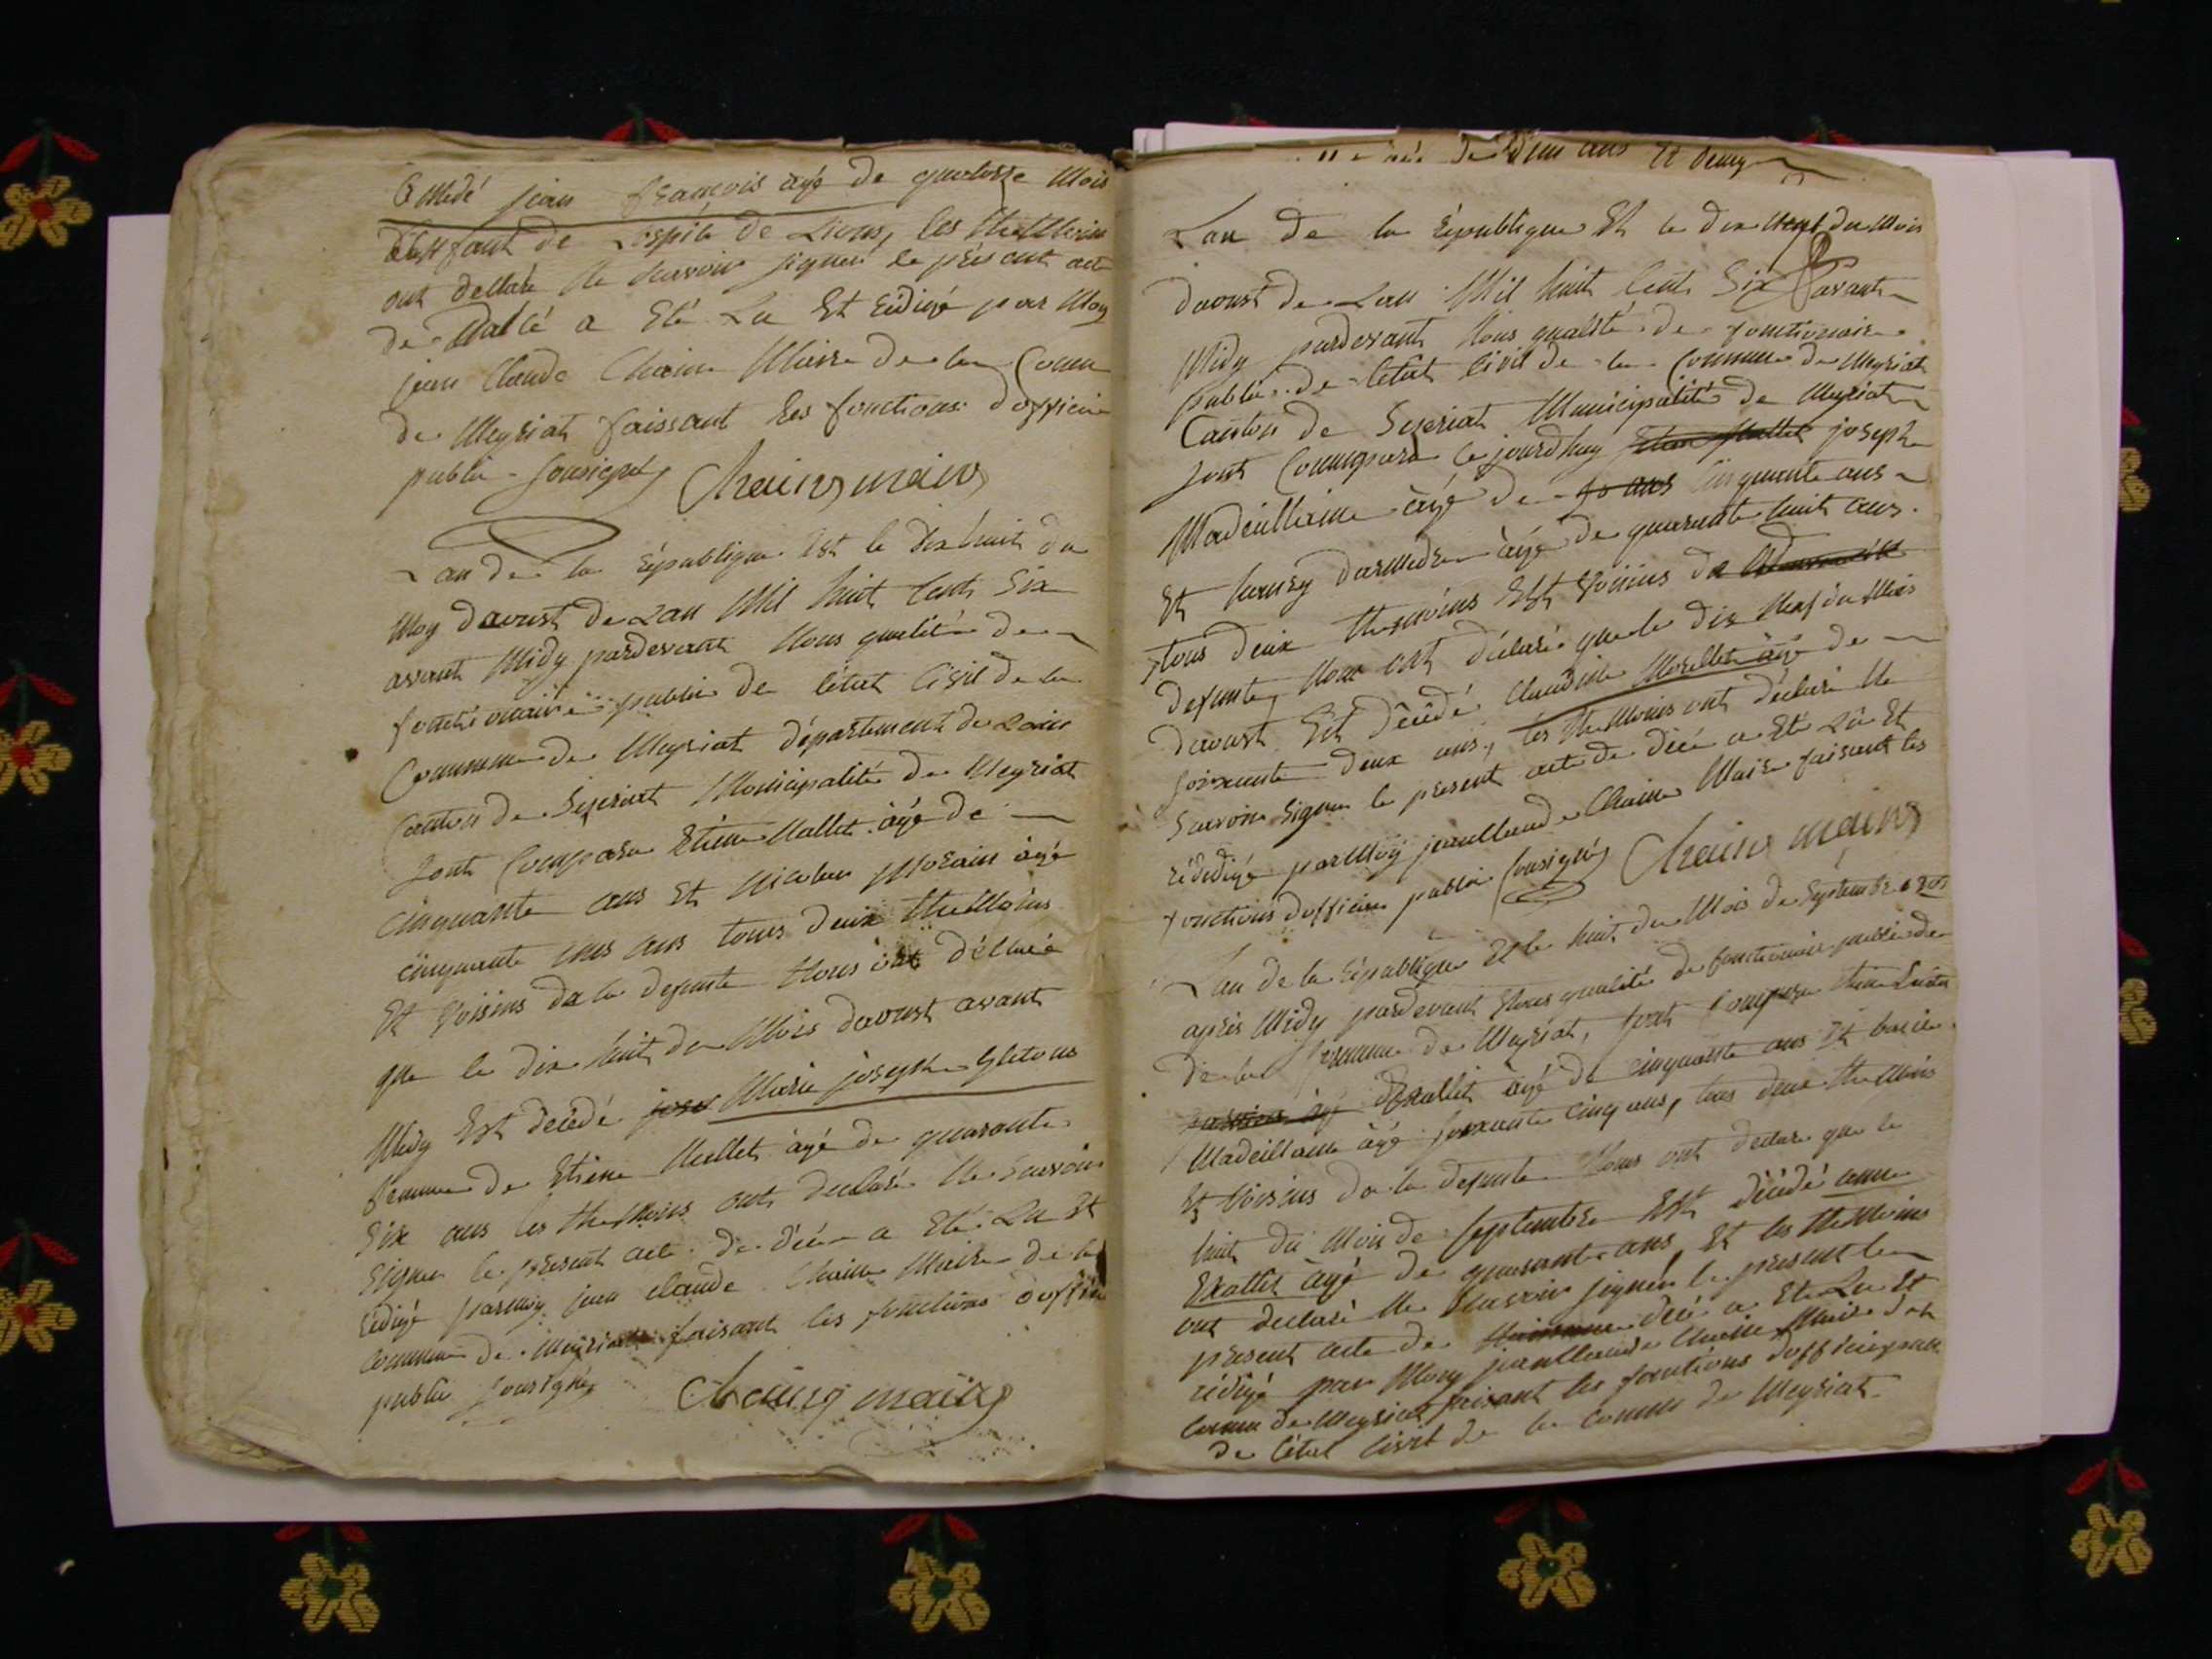 jean françois âgé de quatorze Mois
Enfant de Lospice de Lions, les theMoins
ont declaré Ne Scavoir signer le présent acte
de a Eté Lu Et rédigé par Moy
jean Claude Chaine Maire de la Comu
de Meyriat faissant les fonctions dofficier
public Sousigné Chaine maire
Lan de la république Est le dix huit du
Moy davoust de Lan Mil huit Cents Six
avant Midy pardevant Nous qualité de
fonctionnaire public de l'état Civil de la
Commune de Meyriat département de Lain
Canton de Seyseriat Municipalité de Meyriat
Sont Comparu Etiene Mallet âgé de
cinquante ans Et Nicolas Morain âgé
cinquante ans tous deux theMoins
Et Voisins de la defunte Nous ont déclaré
que le dix huit du Mois davoust avant
Midy Est décédé Marie joseph Gletons
femme de Etiene Mallet âgé de quarante
Six ans les theMoins ont declaré Ne Scavoir
Signer le présent acte de décé a Eté Lu Et
rédigé parmoy jean claude Chaine Maire de la
commune de meyriat faisant les fonctions d'officier
public Sousigné Chaine maire
de deux ans et demy
Lan de la république Et le dix Neuf du Mois
davoust de Lan Mil huit Cents Six avant
Midy pardevant Nous qualité de fonctionaire
public de l'etat Civil de la Commune de Meyriat
Canton de Seyseriat Municipalité de Meyriat
Sont Comparu Ce jourdhuy joseph
Madeillaine âgé de 50 ans Cinquante ans
Et âgé de quarante huit ans
tous deux themoins Est Voisins de
defunte Nous ont déclaré que le dix Neuf du Mois
davoust Est décédé Claudine Morellet âgé de
Soixante deux ans, les theMoins ont déclaré Ne
Scavoir Signer le present acte de décé a Eté Lû Et
rédidigé par Moy jean Claude Chaine Maire faisant les
fonctions dofficier public Sousigné Chaine maire
Lan de la République Et le huit du Mois de Septembre
après Midy pardevant Nous qualité de fonctionaire public de
de la Commune de Meyriat, Sont Comparu
âgé de cinquante ans Et
Madeillaine âgé Soixante cinq ans, tous deux theMoins
Et Voisins de la defunte Nous ont declaré que le
huit du Mois de Septembre Est décédé anne
âgé de quarante ans Et les theMoins
ont declaré Ne Scavoir signer le present
présent acte de décé a Eté Lu Et
rédigé par Moy jean Claude Chaine Maire de la
comune de Meyriat faisant les fonctions d'officier
de l'état Civil de la comune de Meyriat